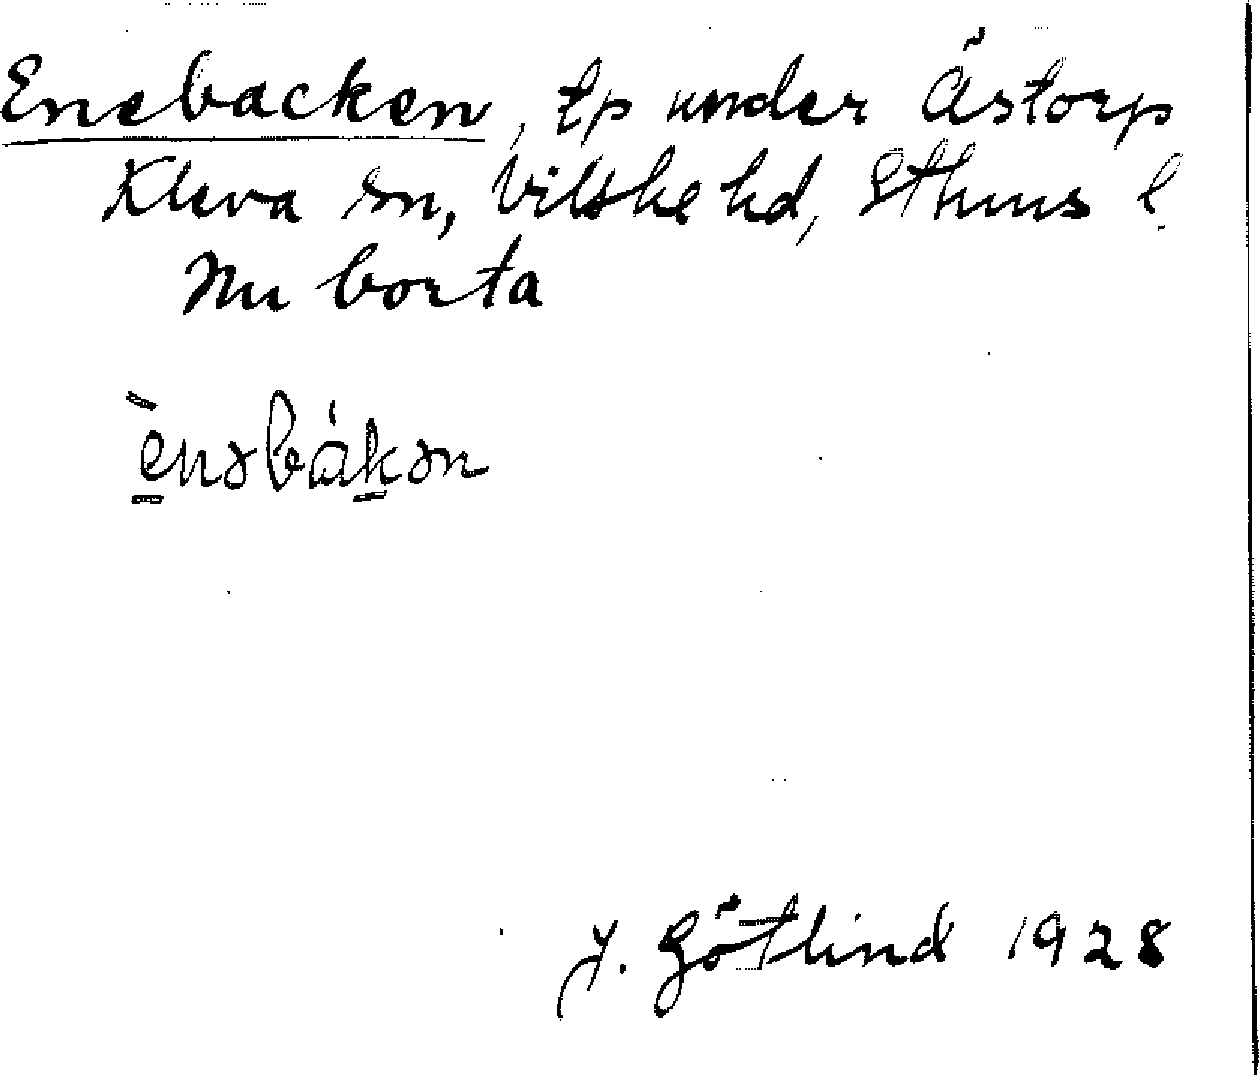 Enebacken, tp under Åstorp
Kleva sn, Vilske hd, Sthms l.
Nu borta
ènəbákən
J. Götlind 1928